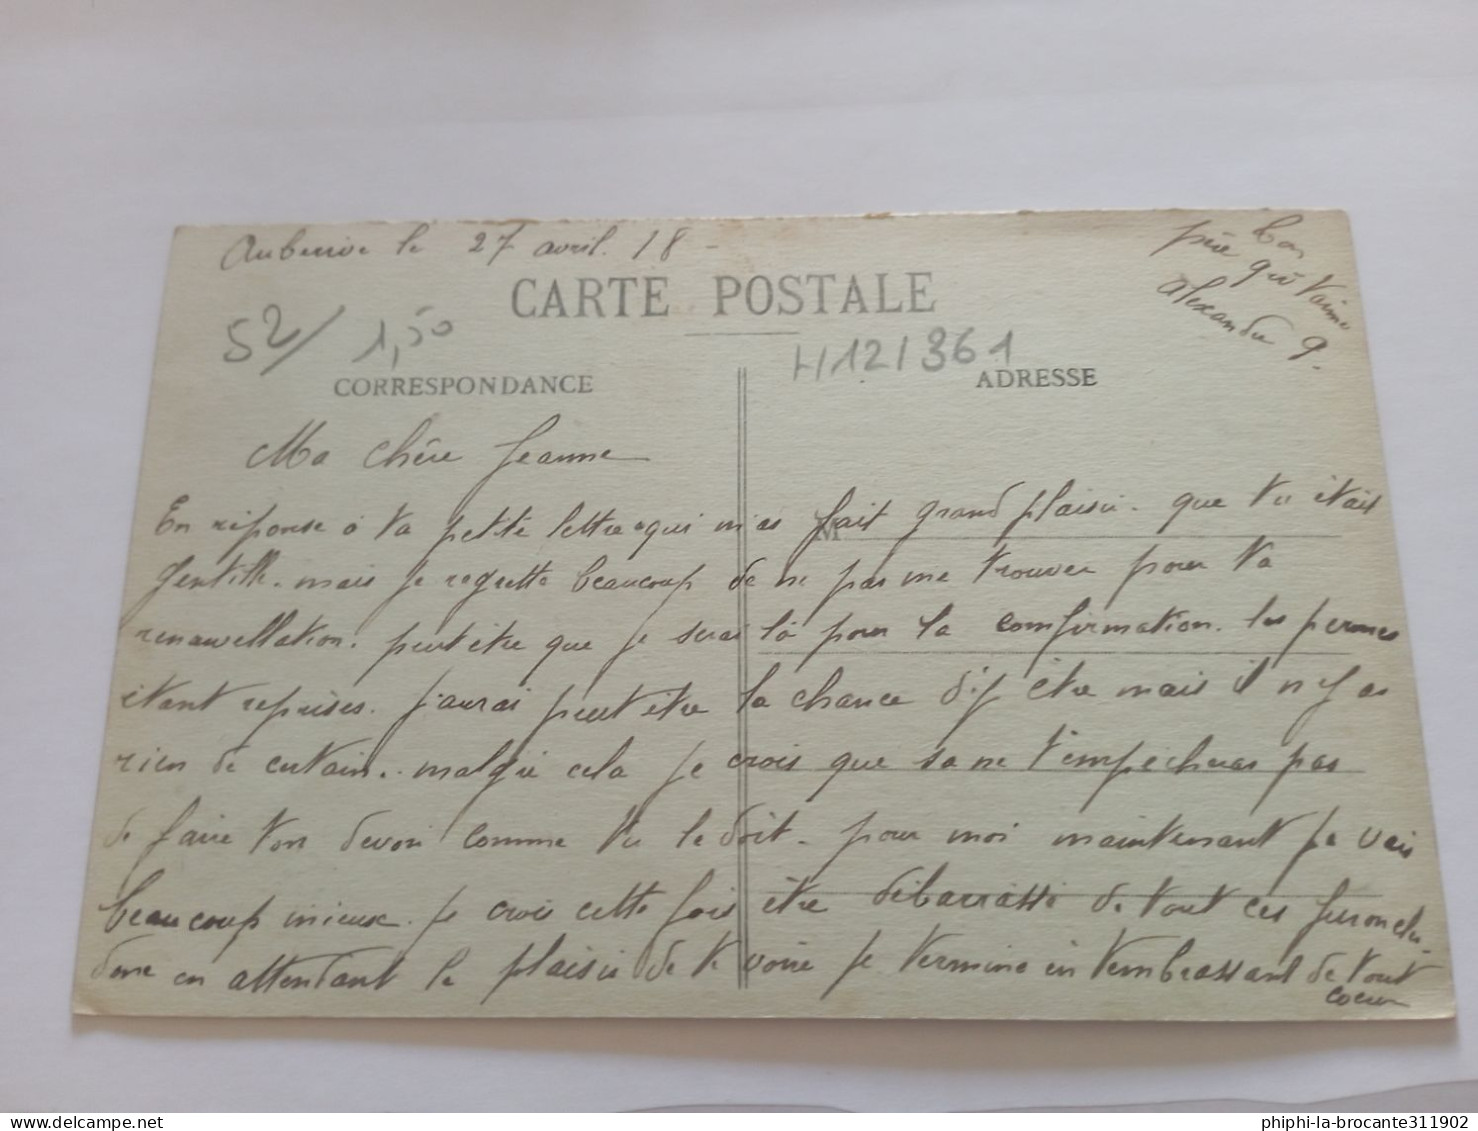 Auberive le 27 avril. 18 -
ton
père qui t'aime
Alexandre G.
CARTE POSTALE
52/ 1,50
H121361
CORRESPONDANCE
ADRESSE
Ma chère Jeanne
En réponse à ta petite lettre qui m'as fait grand plaisir. que tu étais
gentille. mais je regrette beaucoup de ne pas me trouver pour ta
renauvellation. peut être que je serai là pour la comfirmation. les permes
étant reprises. j'aurai peut être la chance d'if être mais il n'y as
rien de certain.. malgré cela je crois que sa ne t'empècheras pas
de faire ton devoir comme tu le doit. pour moi maintenant je vais
beaucoup mieux. je crois cette fois être débarrassé de tout ces furoncles.
donc en attendant le plaisir de te voire je termine en t'embrassant de tout
coeur
M
phiphi-la-brocante311902